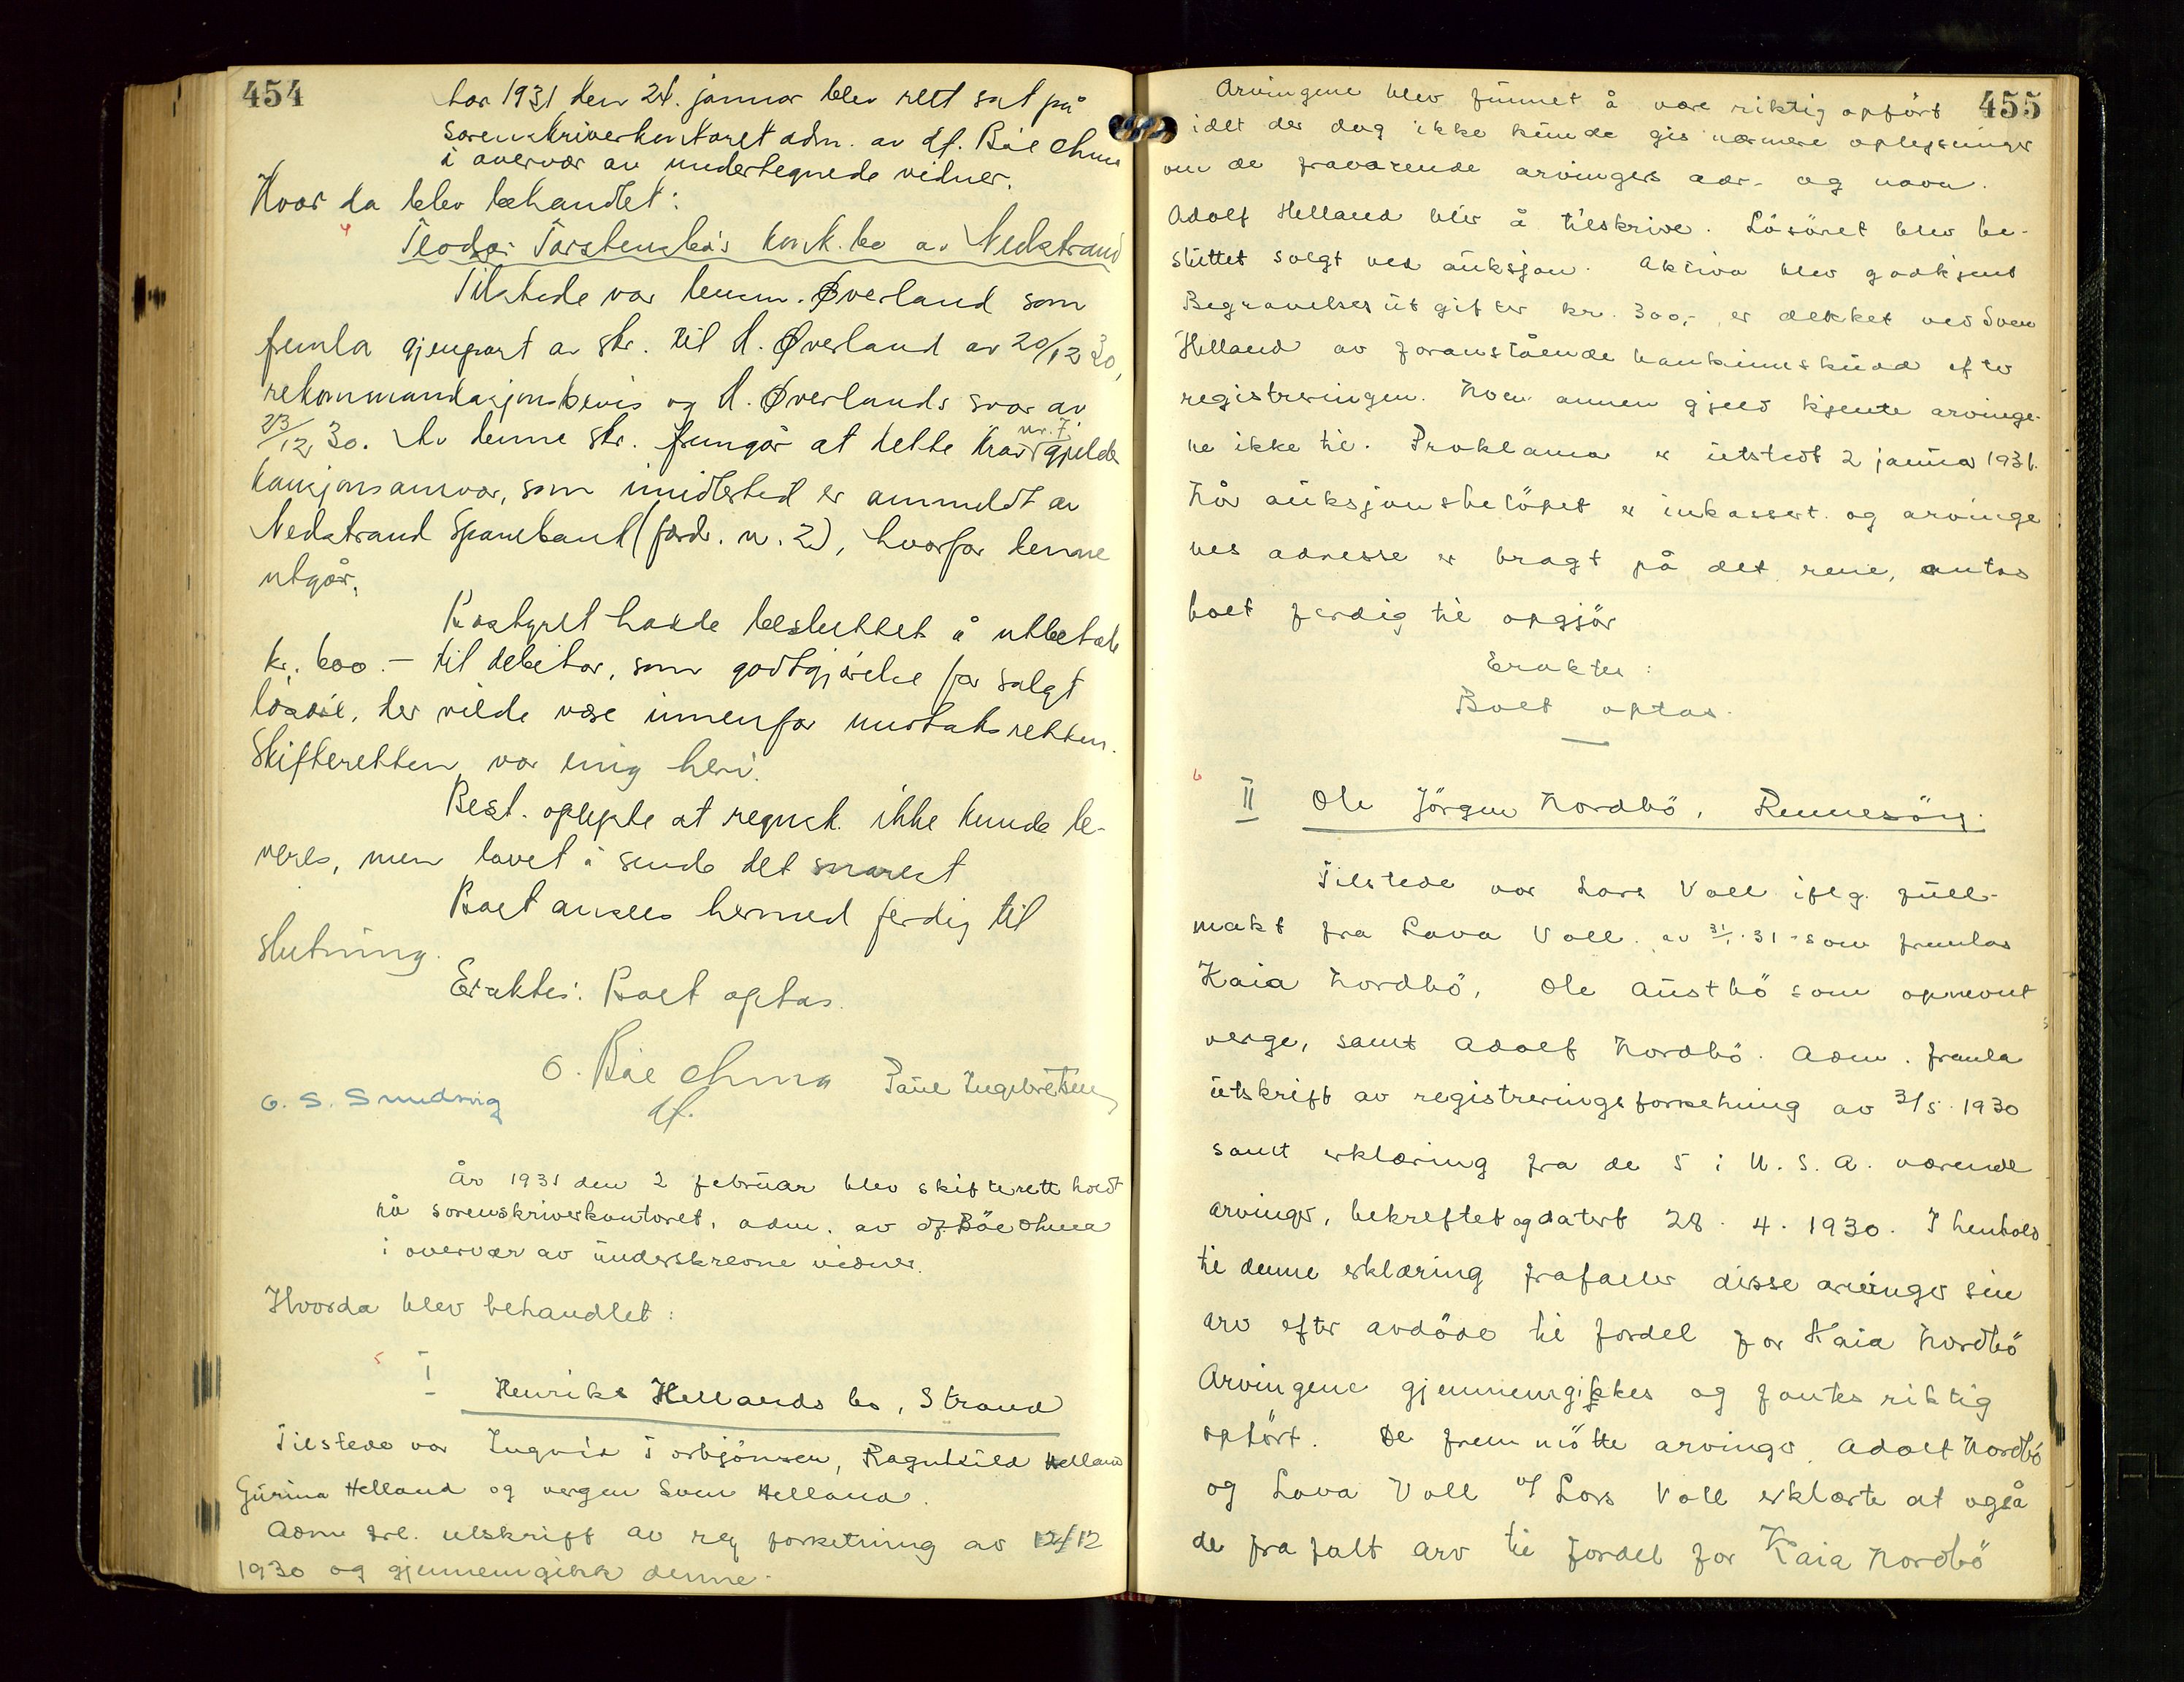 454
År 1931 den 24. januar blev rett sat på
sorenskriverkontoret adm. av df. Bøe Ohma
i overvær av undertegnede vidner.
Hvor da blev behandlet:
4
Teodor Torstensbø's konk.bo av Nedstrand
Tilstede var lensm. Øverland som
fremla gjenpart av skr. til H. Øverland av 20/12 30,
rekommandasjonsbevis og H. Øverlands svar av
23/12 30. Av denne skr. fremgår at dette krav nr. 7. gjelder
kausjonsansvar, som imidlertid er anmeldt av
Nedstrand Sparebank (fordr. nr. 2), hvorfor denne
utgår.
Bostyret hadde besluttet å utbetale
kr. 600.- til debitor, som godtgjørelse for solgt
løsøre, der vilde være innenfor undtaksretten.
Skifteretten var enig heri.
Best. oplyste at regnsk. ikke kunde le-
veres, men lovet å sende det snarest
Boet ansees hermed ferdig til
slutning.
Eraktes: Boet optas.
O. Bøe Ohma
df.
G. S. Sundsvig
Paul Ingebretsen
År 1931 den 2 februar blev skifterett holdt
på sorenskriverkontoret, adm. av df. Bøe Ohma
i overvær av underskrevne vidner.
Hvorda blev behandlet:
5
I
Henriks Hellands bo, Strand
Tilstede var Ingvald Torbjönsen, Ragnhild Helland
Gurina Helland og vergen Sven Helland.
Adm frl. utskrift av reg forretning av 12/12
1930 og gjennemgikk denne.
455
Arvingene blev funnet å være riktig opført
idet der dog ikke kunde gis nærmere oplysninger
om de fraværende arvingers adr. og navn.
Adolf Helland blir å tilskrive. Løsöret blev be-
sluttet solgt ved auksjon. Aktiva blev godkjent
Begravelsesutgifter kr. 300,- er dekket ved Sven
Helland av foranstående bankinnskudd efter
registreringen. Noen annen gjeld kjente arvinge-
ne ikke til. Proklama er utstedt 2 januar 1931.
Når auksjonsbelöpet er inkassert og arvinge
nes adresse er bragt på det rene, antas
boet ferdig til opgjör
Eraktes:
Boet optas.
6
II Ole Jörgen Nordbö, Rennesöy.
Tilstede var Lars Voll iflg. full-
makt fra Lava Voll av 31/1-31 som fremlas
Kaia Nordbö, Ole Austbö som opnevnt
verge, samt Adolf Nordbö. Adm. fremla
utskrift av registreringsforretning av 3/5. 1930
samt erklæring fra de 5 i U.S.A. værende
arvinger, bekreftet og datert 28. 4. 1930. I henhold
til denne erklæring frafaller disse arvinger sin
arv efter avdöde til fordel for Kaia Nordbö
Arvingene gjennemgikkes og fantes riktig
opfört. De frem mötte arvinger Adolf Nordbö
og Lava Voll v/ Lars Voll erklærte at også
de frafalt arv til fordel for Kaia Nordbö